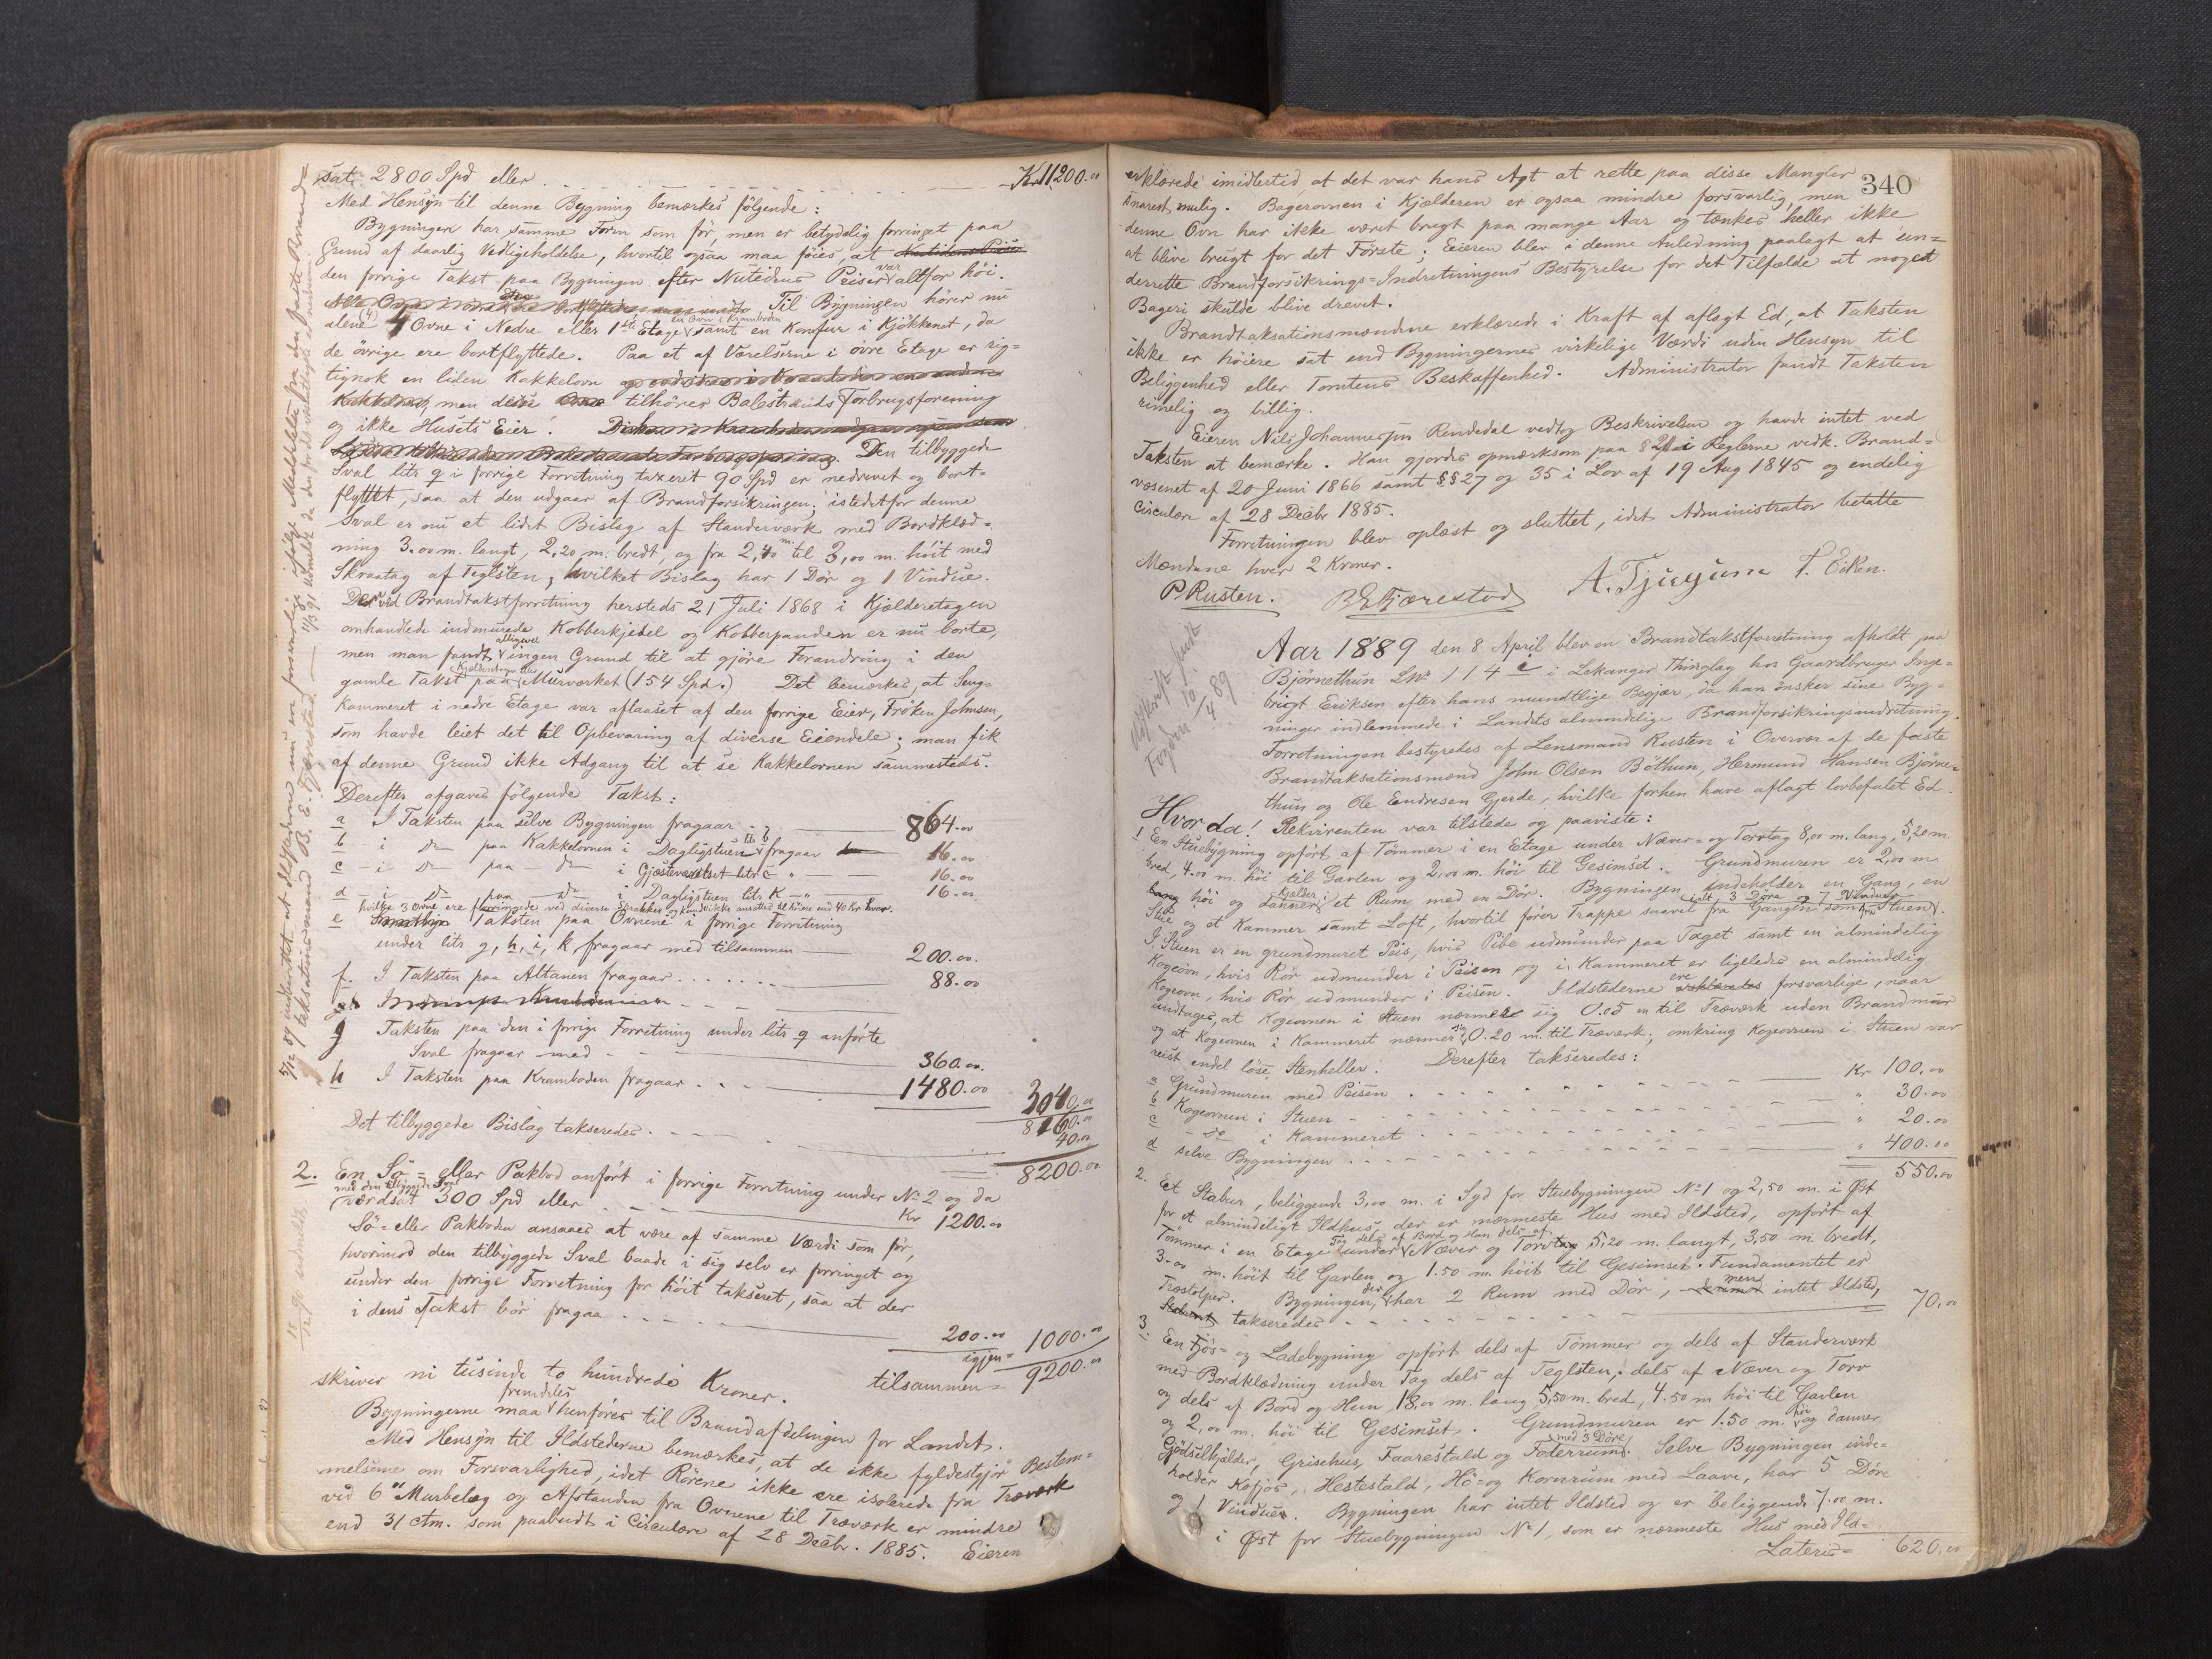 sat. 2800 Spd eller . . . Kr 11200.00
Med Hensyn til denne Bygning bemærkes følgende:
Bygningen har samme Form som før, men er betydelig forringet paa
Grund af daarlig Vedligeholdelse, hvortil ogsaa maa føies, at
den forrige Takst paa Bygningen efter Nutidens Priser var altfor høi.
Til Bygningen hører nu
alene (4) 4 Ovne i Nedre eller 1ste Etage, en Ovn i Kramboden samt en Komfur i Kjøkkenet, da
de øvrige ere bortflyttede. Paa et af Værelserne i øvre Etage er rig-
tignok en liden Kakkelovn
men denne tilhører Balestrands Forbrugsforening
og ikke Husets Eier.
Den tilbyggede
Sval litr q i forrige Forretning taxeret 90 Spd er nedrevet og bort-
flyttet, saa at den udgaar af Brandforsikringen; istedetfor denne
Sval er nu et lidet Bislag af Standerværk med Bordklæd-
ning 3.00 m. langt, 2,20 m. bredt og fra 2,40 m. til 3,00 m. høit med
Skraatag af Teglsten, hvilket Bislag har 1 Dør og 1 Vindue.
Den ved Brandtakstforretning hersteds 21 Juli 1868 i Kjælderetagen
omhandlede indmurede Kobberkjedel og Kobberpanden er nu borte,
men man fandt alligevel ingen Grund til at gjøre Forandring i den
gamle Takst paa Kjælderetagen eller Murværket (154 Spd.) Det bemærkes, at Seng-
kammeret i nedre Etage var aflaaset af den forrige Eier, Frøken Johnsen,
som havde leiet det til Opbevaring af diverse Eiendele; man fik
af denne Grund ikke Adgang til at se Kakkelovnen sammesteds.
Derefter afgaves følgende Takst:
a I Taksten paa selve Bygningen fragaar — 864.00
b i Do paa Kakkelovnen i Dagligstuen litr b fragaar — 16.00
c - i Do paa - do i Gjæsteværelset litr c " — 16.00
d - i Do paa - do i Dagligstuen litr K - " — 16.00
hvilke 3 Ovne ere forringede ved diverse Sprækker og kund ikke ansættes til høiere end 40 Kr hver.
e Taksten paa Ovnene i forrige Forretning
under litr g, h, i, k fragaar med tilsammen — 200.00.
f. I Taksten paa Altanen fragaar . . . 88.00
g Taksten paa den i forrige Forretning under litr q anførte
Sval fragaar med — 360.00.
h I Taksten paa Kramboden fragaar . . . 1480.00 3040.00
8160.00
Det tilbyggede Bislag takseredes . . . 40.00
8200.00
2. En Sø- eller Pakbod anført i forrige Forretning under No 2 og da
med den tilbyggede Sval værdsat 300 Spd eller . . . Kr 1200.00
Sø- eller Pakboden ansaaes at være af samme Værdi som før,
hvorimod den tilbyggede Sval baade i sig selv er forringet og
under den forrige Forretning for høit takseret, saa at der
i dens Takst bør fragaa . . . 200.00
igjen = 1000.00
tilsammen = 9200.00
skriver ni tusinde to hundrede Kroner.
Bygningerne maa fremdeles henføres til Brandafdelingen for Landet.
Med Hensyn til Ildstederne bemærkes, at de ikke fyldestgjør Bestem-
melserne om Forsvarlighed, idet Rørene ikke ere isolerede fra Træværk
ved 6" Murbelæg og Afstanden fra Ovnene til Træværk er mindre
end 31 ctm. som paabudt i Circulære af 28 Decbr. 1885. Eieren
340
erklærede imidlertid, at det var hans Agt at rette paa disse Mangler
snarest mulig. Bagerovnen i Kjælderen er ogsaa mindre forsvarlig, men
denne Ovn har ikke været brugt paa mange Aar og tænkes heller ikke
at blive brugt for det Første; Eieren blev i denne Anledning paalagt at un-
derrette Brandforsikrings-Indretningens Bestyrelse for det Tilfælde at noget
Bageri skulde blive drevet.
Brandtaksationsmændene erklærede i Kraft af aflagt Ed, at Taksten
ikke er høiere sat end Bygningernes virkelige Værdi uden Hensyn til
Beliggenhed eller Tomtens Beskaffenhed. Administrator fandt Taksten
rimelig og billig.
Eieren Nils Johannesen Rendedal vedtog Beskrivelsen og havde intet ved
Taksten at bemærke. Han gjordes opmærksom paa § 21 i Reglerne vedk. Brand-
væsenet af 20 Juni 1866 samt §§ 27 og 35 i Lov af 19 Aug 1845 og endelig
Circulære af 28 Decbr 1885.
Forretningen blev oplæst og sluttet, idet Administrator betalte
Mændene hver 2 Kroner.
P Rusten. B E Fjærestad A. Tjugum T. Eiken.
Aar 1889 den 8 April blev en Brandtakstforretning afholdt paa
Bjørnethun LNo 114 c i Lekanger Thinglag hos Gaardbruger Inge-
brigt Eriksen efter hans mundtlige Begjær, da han ønsker sine Byg-
ninger indlemmede i Landets almindelige Brandforsikringsindretning.
Forretningen bestyredes af Lensmand Rusten i Overvær af de faste
Brandtaksationsmænd John Olsen Bøthun, Hermund Hansen Bjørne-
thun og Ole Endresen Gjerde, hvilke forhen have aflagt lovbefalet Ed.
Hvorda! Rekvirenten var tilstede og paaviste:
1 En Stuebygning opført af Tømmer i en Etage under Næver- og Torvtag 8,00 m. lang, 5,20 m.
bred, 4.00 m. høi til Gavlen og 2,00 m. høi til Gesimset. Grundmuren er 2,00 m.
høi og danner Kjælder et Rum, med en Dør. Bygningen indeholder en Gang, en
Stue og et Kammer samt Loft, hvortil fører Trappe saavel fra Gangen som fra Stuen, ialt 3 Døre og 7 Vinduer.
I Stuen er en grundmuret Peis, hvis Pibe udmunder paa Taget samt en almindelig
Kogeovn, hvis Rør udmunder i Peisen og i Kammeret er ligeledes en almindelig
Kogeovn, hvis Rør udmunder i Peisen. Ildstederne ere forsvarlige, naar
undtages, at Kogeovnen i Stuen nærmer sig 0.05 m til Træværk uden Brandmur
og at Kogeovnen i Kammeret nærmer sig 0.20 m. til Træværk; omkring Kogeovnen i Stuen var
reist endel løse Stenheller. Derefter takseredes:
a Grundmuren med Peisen . . . Kr 100,00
b Kogeovnen i Stuen . . . " 30.00
c - do i Kammeret . . . " 20.00
d selve Bygningen . . . " 400.00
550.00
2. Et Stabur, beliggende 3,00 m. i Syd for Stuebygningen No 1 og 2,50 m. i Øst
for et almindeligt Ildhus, der er nærmeste Hus med Ildsted, opført af
Tømmer i en Etage under Tag dels af Bord og Hun dels af Næver og Torv 5,20 m. langt, 3,50 m. bredt,
3.00 m. høit til Gavlen og 1.50 m. høit til Gesimset. Fundamentet er
Træstolper. Bygningen, der har 2 Rum med Dør, men intet Ildsted,
takseredes . . . 70,00
3. En Fjøs- og Ladebygning opført dels af Tømmer og dels af Standerværk
med Bordklædning under Tag dels af Teglsten, dels af Næver og Torv
og dels af Bord og Hun, 18,00 m. lang, 5,50 m. bred, 4.50 m høi til Gavlen
og 2,00 m. høi til Gesimset. Grundmuren er 1.50 m. høi og danner
Gjødselkjælder, Grisehus, Faarestald og Foderrum med 3 Døre. Selve Bygningen inde-
holder Kofjøs, Hestestald, Hø- og Kornrum med Laave, har 5 Døre
og 1 Vindue. Bygningen har intet Ildsted og er beliggende 7.00 m.
i Øst for Stuebygningen No 1, som er nærmeste Hus med Ild-
Lateris = 620.00